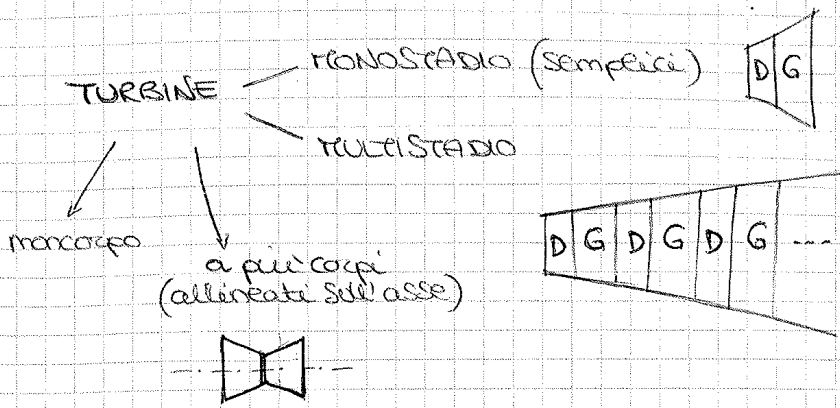 MONOSTADIO (semplici)
D G
TURBINE
MULTISTADIO
moncorpo
a più corpi
(allineati sull'asse)
D G D G D G ---